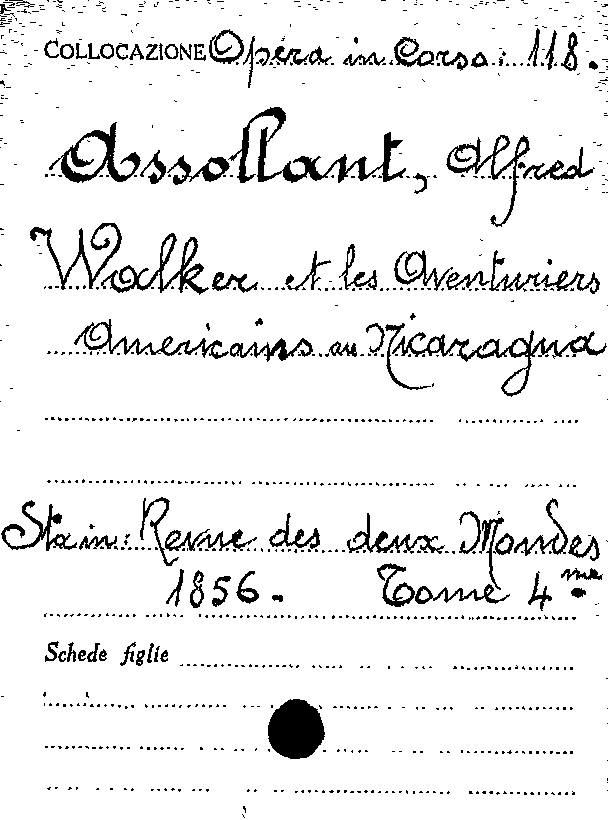 COLLOCAZIONE Opera in Corso: 118.
Assollant, Alfred
Walker et les Aventuriers
Americains au Nicaragua
Sta in: Revue des deux Mondes
1856. Tome 4.me
Schede figlie